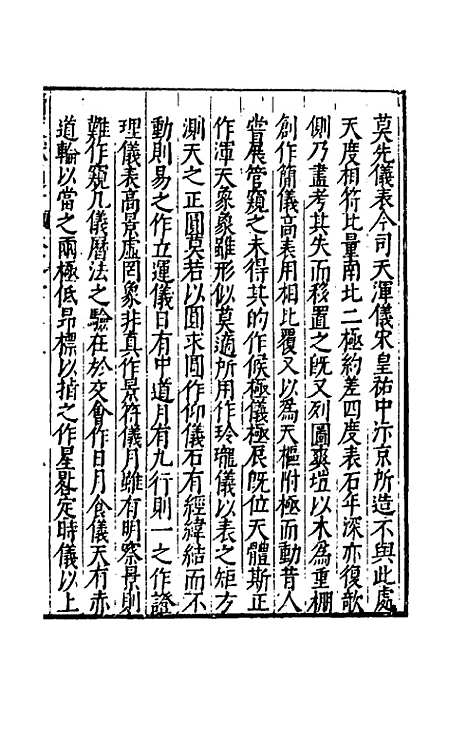 莫先儀表今司天渾儀宋皇祐中汴京所造不與此處
天度相符比量南北二極約差四度表石年深亦復欹
側乃盡考其失而移置之既又列圖爽塏以木為重棚
創作簡儀高表用相比覆又以為天樞附極而動昔人
嘗展管窺之未得其的作候極儀極辰既位天體斯正
作渾天象象雖形似莫適所用作玲瓏儀以表之矩方
測天之正圓莫若以圓求圓作仰儀石有經緯結而不
動則易之作立運儀日有中道月有九行則一之作證
理儀表高景虛罔象非真作景符儀月雖有明察景則
難作窺几儀曆法之驗在於交會作日月食儀天有赤
道輪以當之兩極低昂標以指之作星晷定時儀以上